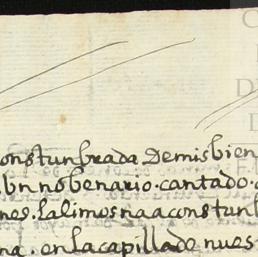 constunbrada demis bien
bn nobenario. cantado.
nes. la limosna aconstunb
na. en la capilla de nues